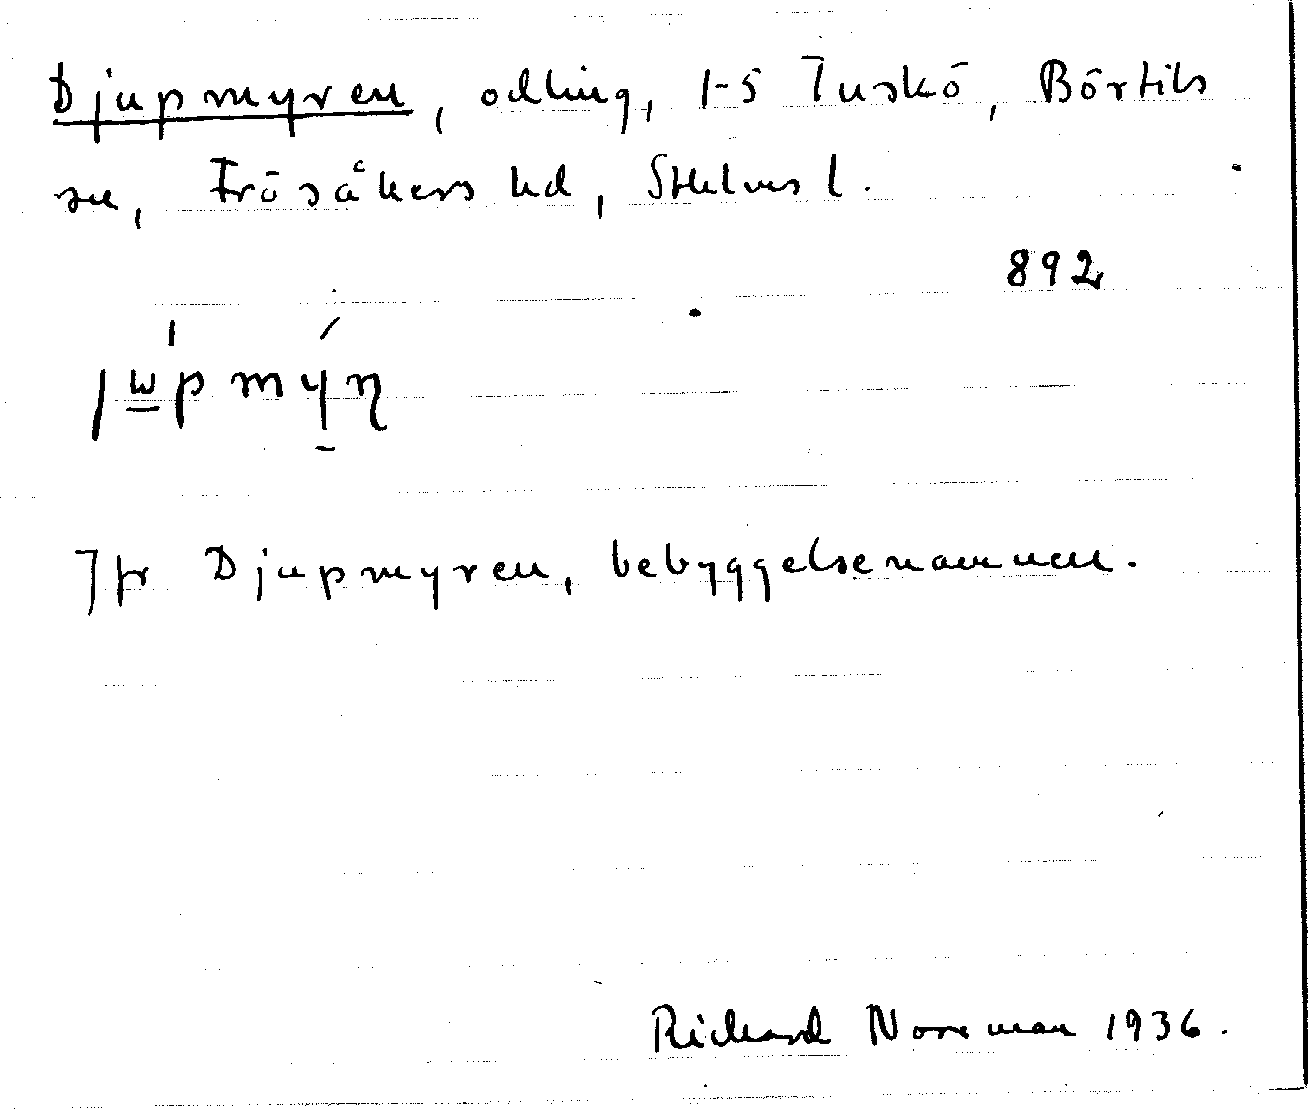 Djupmyren, odling, 1-5 Tuskö, Börtils
sn, Frösåkers hd, Sthlms l.
892
Jfr Djupmyren, bebyggelsenamnen.
Richard Norrman 1936.